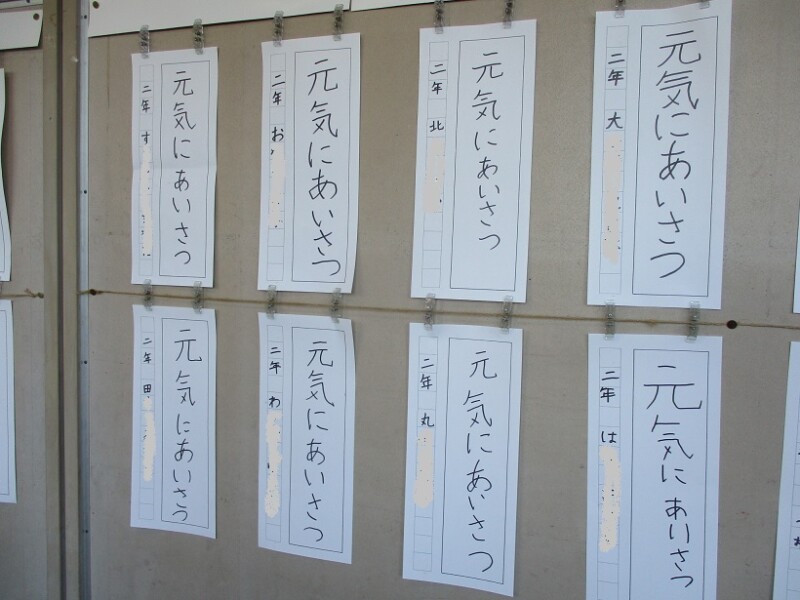 元気にあいさつ
二年 す
元気にあいさつ
二年 お
元気にあいさつ
二年 北
元気にあいさつ
二年 大
元気にあいさつ
二年 田
元気にあいさつ
二年 わ
元気にあいさつ
二年 丸
元気にあいさつ
二年 は